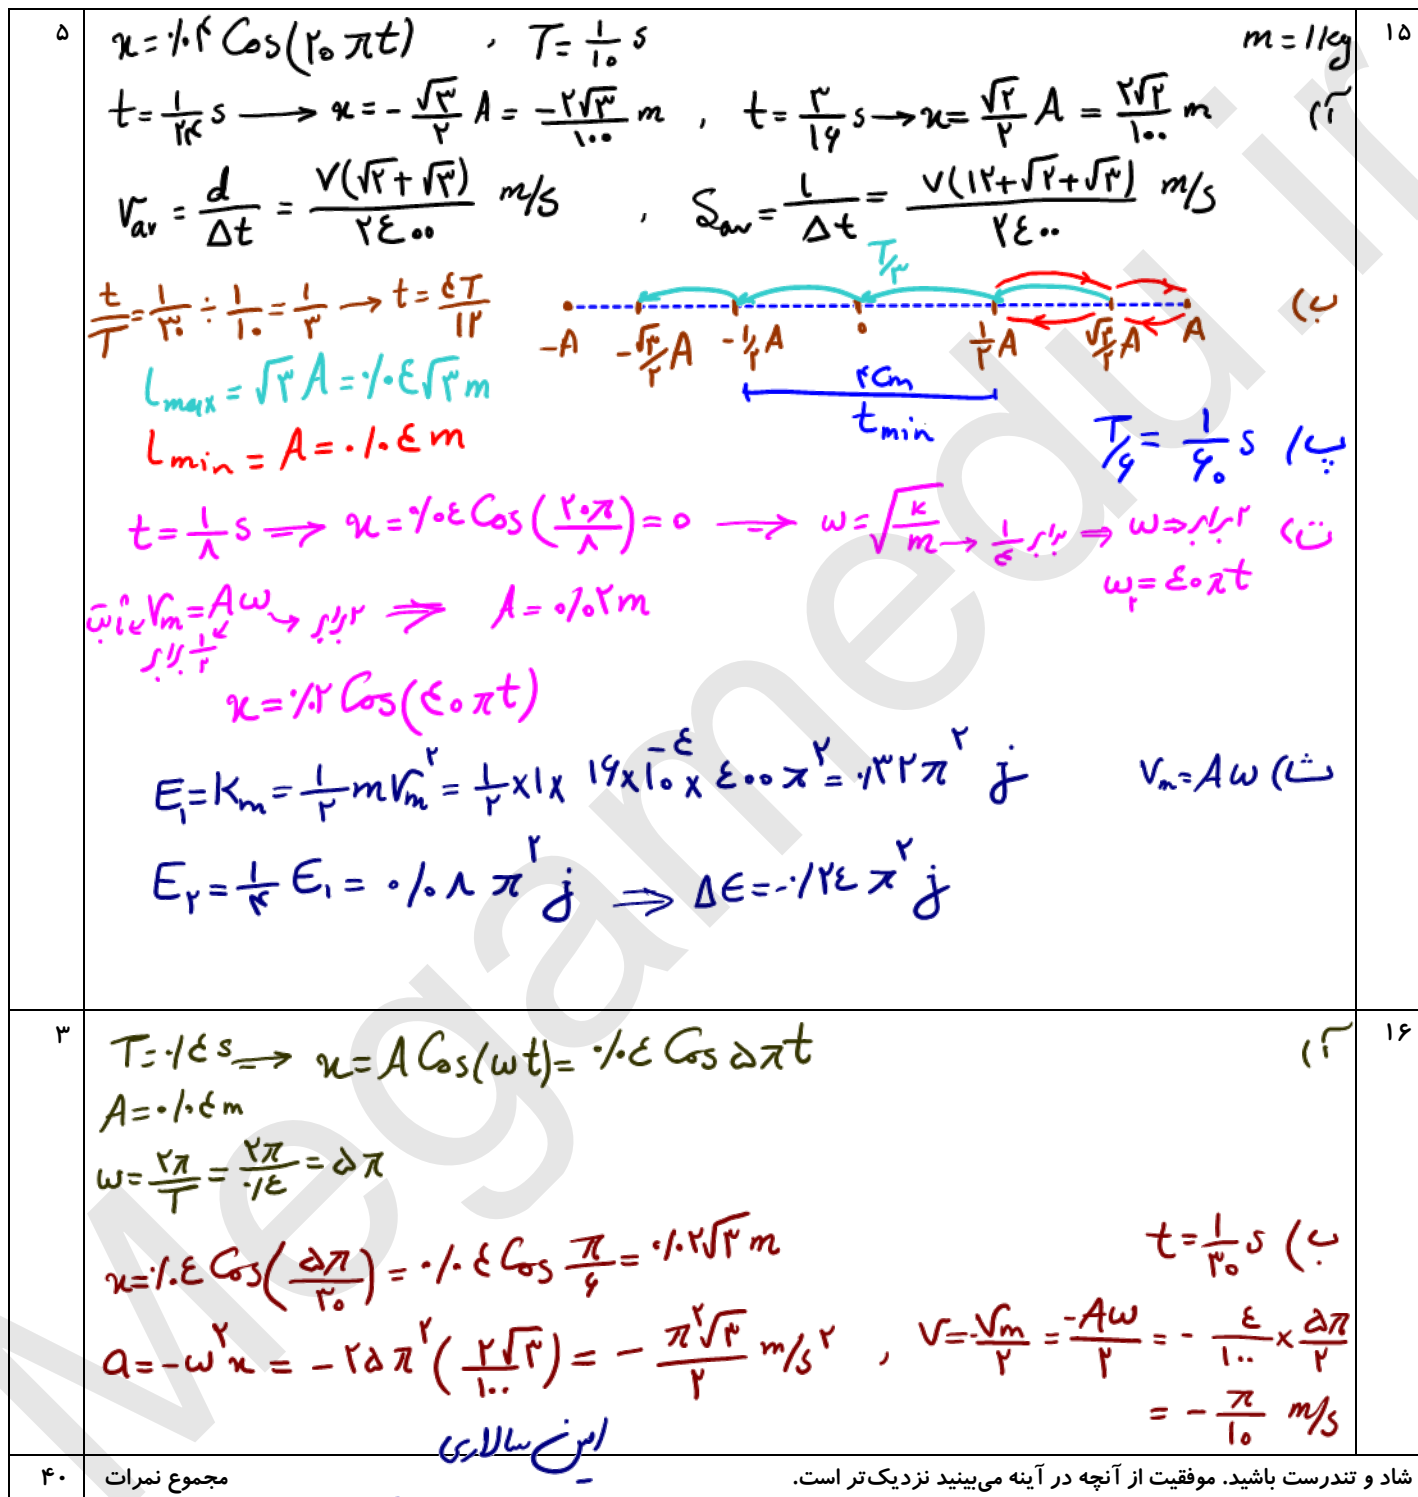 ۱۵
۵
m = ۱kg
x = ٠/٠۴ Cos(۲۰πt) , T = ۱/۱۰ s
آ) t = ۱/۲۴ s ⟶ x = -√۳/۲ A = -۲√۳/۱۰۰ m , t = ۳/۱۶ s ⟶ x = √۲/۲ A = ۲√۲/۱۰۰ m
V_av = d/Δt = ۷(√۲+√۳)/۲٤۰۰ m/s , S_av = l/Δt = ۷(۱۲+√۲+√۳)/۲٤۰۰ m/s
ب) t/T = ۱/۳۰ ÷ ۱/۱۰ = ۱/۳ ⟶ t = ٤T/۱۲
T/۳
-A -√۳/۲ A -۱/۲ A ۰ ۱/۲ A √۳/۲ A A
L_max = √۳ A = ۰/۰٤√۳ m
L_min = A = ۰/۰٤ m
۴Cm
t_min
پ) T/۶ = ۱/۶۰ s
ت) t = ۱/۸ s ⟹ x = ۰/۰٤ Cos(۲۰π/۸) = ۰ ⟹ ω = √(k/m) → ۱/٤ برابر ⟹ ω ⟹ ۲ برابر
ω₂ = ٤۰πt
ثابت V_m = Aω → ۲ برابر ⟹ A = ۰/۰۲ m
۱/۲ برابر
x = ۰/۰۲ Cos(٤۰πt)
ث) V_m = Aω
E₁ = K_m = ۱/۲ mV_m² = ۱/۲ × ۱ × ۱۶ × ۱۰⁻٤ × ٤۰۰π² = ۰/۳۲π² j
E₂ = ۱/۴ E₁ = ۰/۰۸ π² j ⟹ ΔE = -۰/۲٤ π² j
۱۶
۳
آ) T = ۰/٤ s ⟹ x = A Cos(ωt) = ۰/۰٤ Cos ۵πt
A = ۰/۰٤ m
ω = ۲π/T = ۲π/۰/٤ = ۵π
ب) t = ۱/۳۰ s
x = ۰/۰٤ Cos(۵π/۳۰) = ۰/۰٤ Cos π/۶ = ۰/۰۲√۳ m
a = -ω²x = -۲۵π²(۲√۳/۱۰۰) = -π²√۳/۲ m/s² , V = -V_m/۲ = -Aω/۲ = -٤/۱۰۰ × ۵π/۲
= -π/۱۰ m/s
امین سالاری
شاد و تندرست باشید. موفقیت از آنچه در آینه می‌بینید نزدیک‌تر است.
مجموع نمرات
۴۰
Megamedu.ir